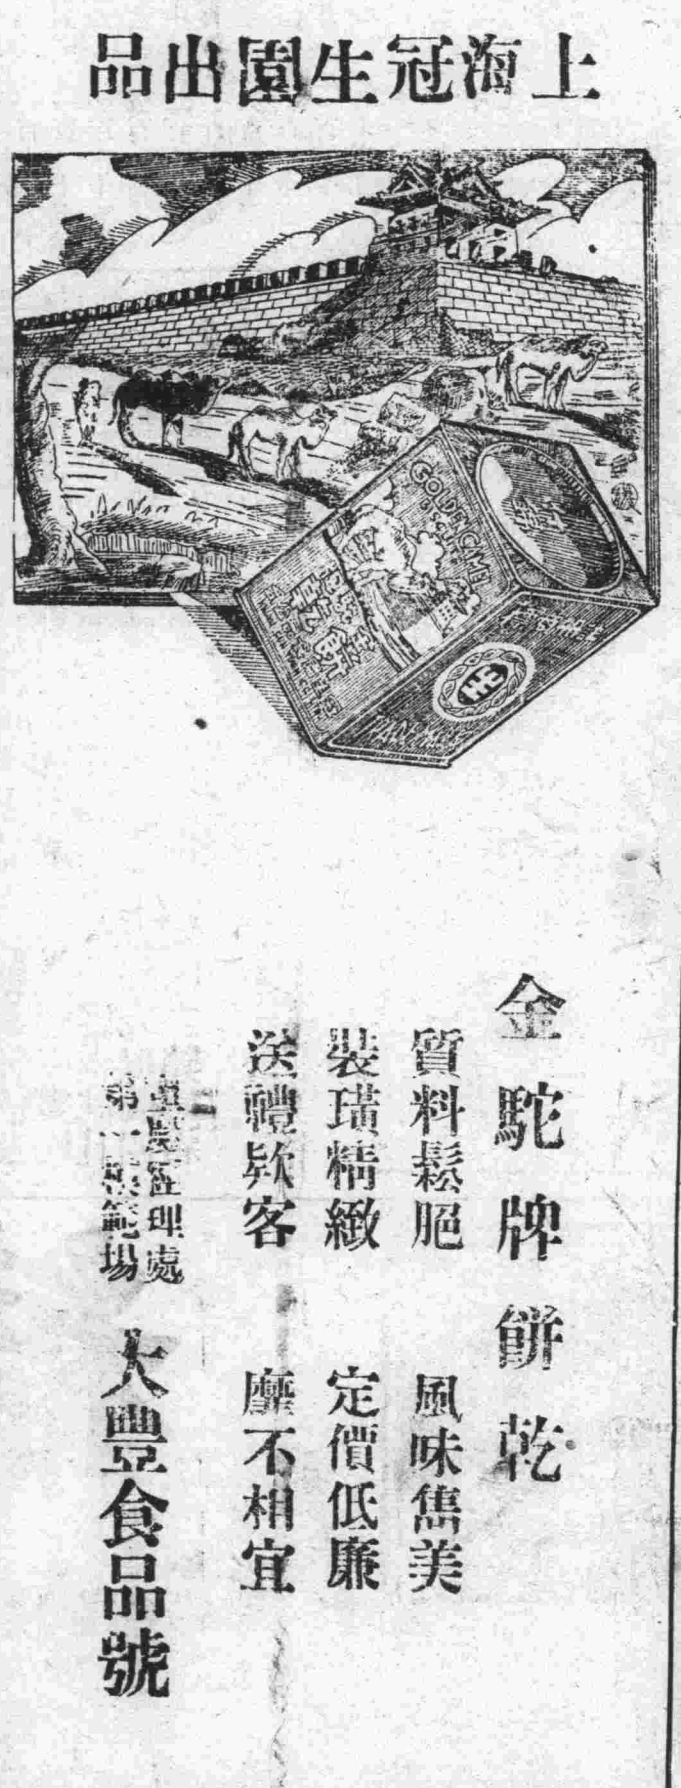 上海冠生園出品
GOLDEN CAMEL
餅乾
金駝牌餅乾
質料鬆脆 風味雋美
裝璜精緻 定價低廉
送禮欵客 靡不相宜
管理處
第一模範場
大豐食品號